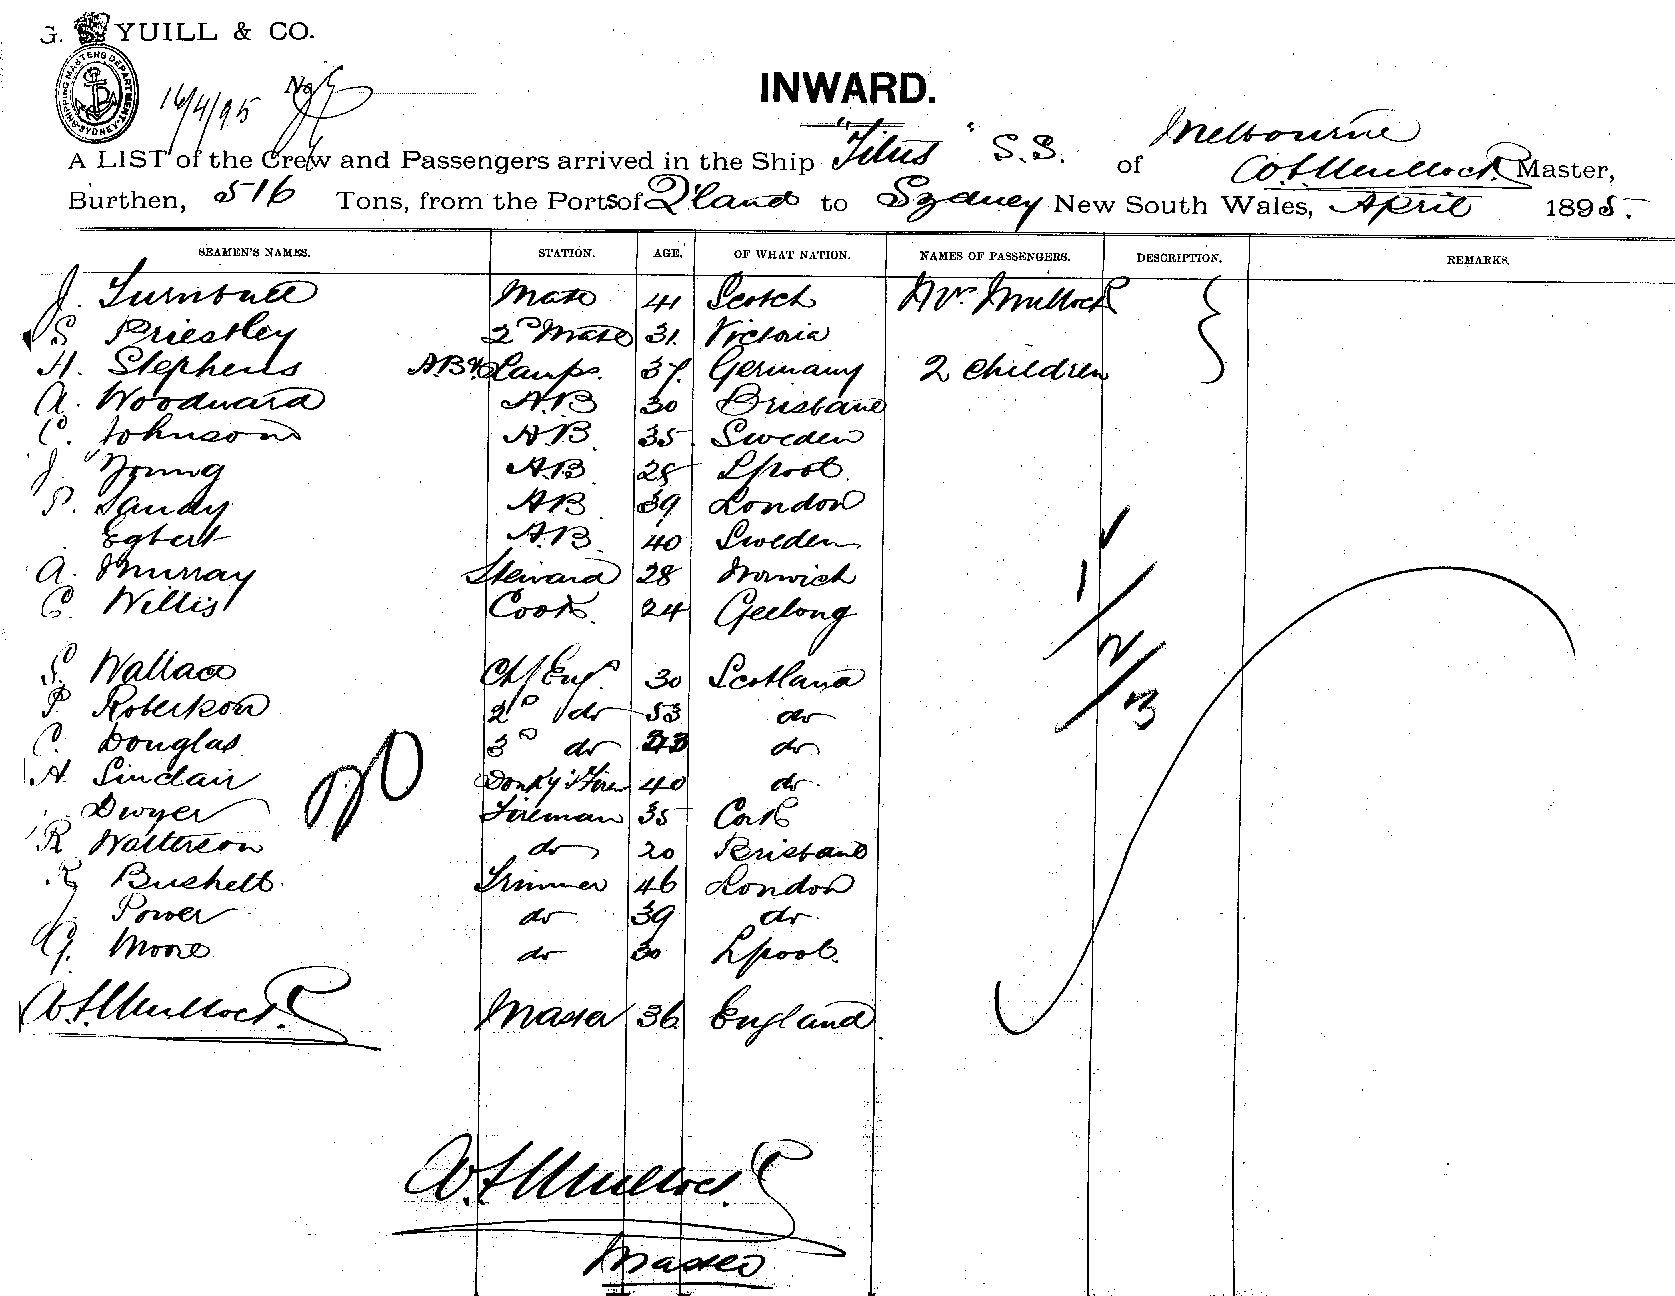 G. YUILL & CO.
SHIPPING MASTERS DEPARTMENT SYDNEY
16/4/95
INWARD.
Melbourne
A LIST of the Crew and Passengers arrived in the Ship "Titus" S.S. of W.F. Mullock Master,
Burthen, 516 Tons, from the Ports of Q'land to Sydney New South Wales, April 1895.
SEAMEN'S NAMES. STATION. AGE. OF WHAT NATION. NAMES OF PASSENGERS. DESCRIPTION. REMARKS.
J. Turnbull Mate 41 Scotch Mrs Mullock
S Priestley 2D Mate 31. Victoria
H. Stephens AB & Lamps. 37. Germany 2 children
A. Woodward AB 30 Brisbane
C. Johnson AB 35 Sweden
J. Young AB 28 Lpool.
P. Sandy AB 39 London
Egbert AB 40 Sweden
A. Murray Steward 28 Norwich
C. Willis Cook. 24 Geelong
1/2/3
S. Wallace Chf Engr. 30 Scotland
P Robertson 2D do 53 do
C. Douglas 3D do do
A. Sinclair Donky & Firem 40 do
Dwyer Fireman 35 Cork
R Watterson do 20 Brisbane
20
R Bushell. Trimmer 46 London
J. Power do 39 do
G. Moore do 30 Lpool.
W.F. Mullock. Master 36 England
W.F. Mullock.
Master